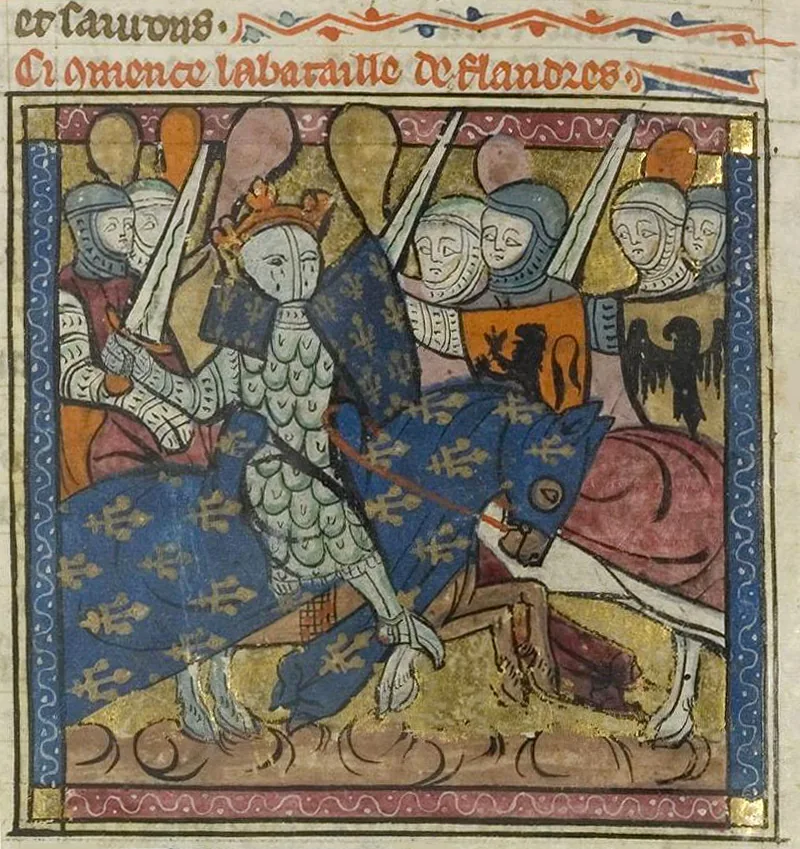 et sauuons.
Ci 9mence la bataille de flandres.